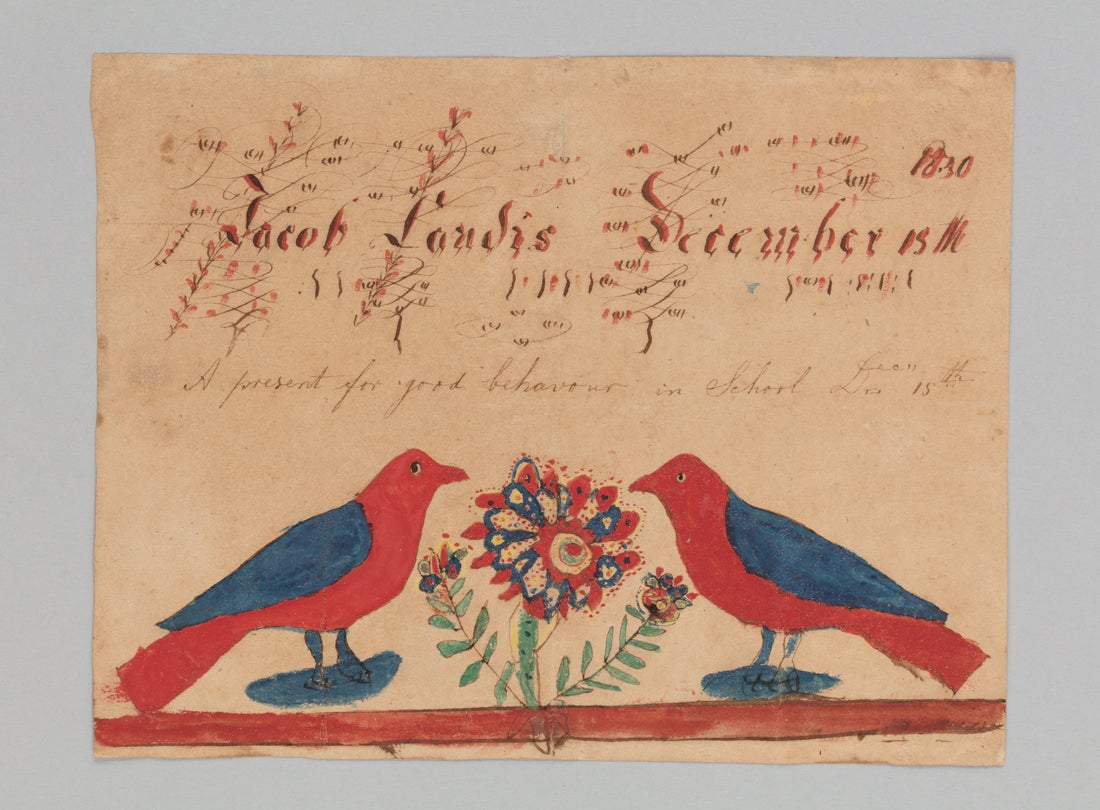 1830
Jacob Landis December 15th
A present for good behavour in School Decm 15th